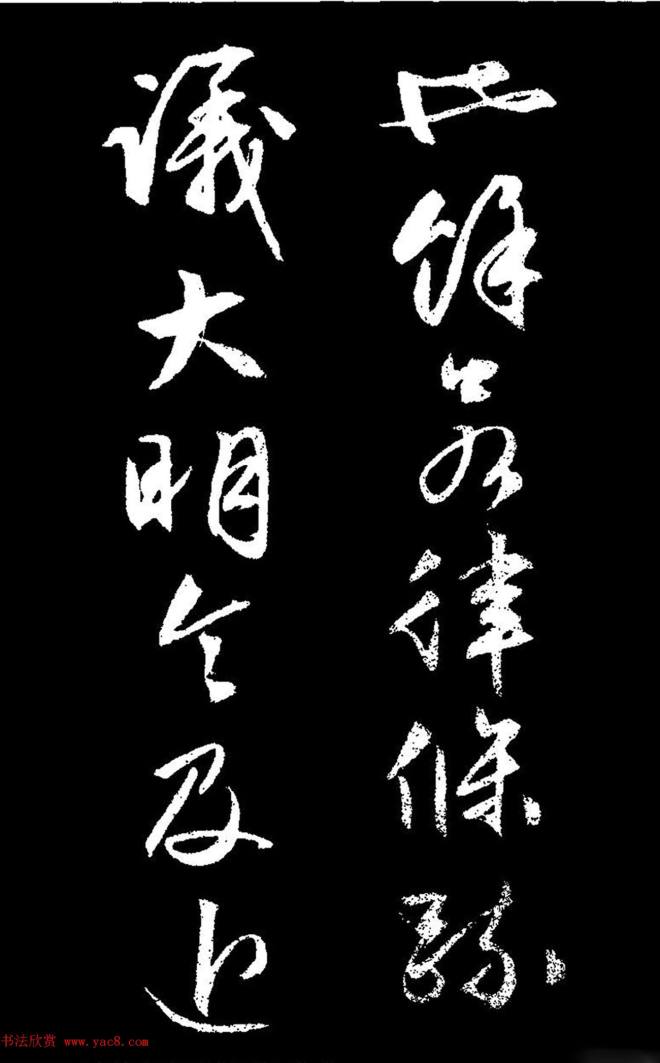 餘律條疏
議大明令及近
书法欣赏 www.yac8.com